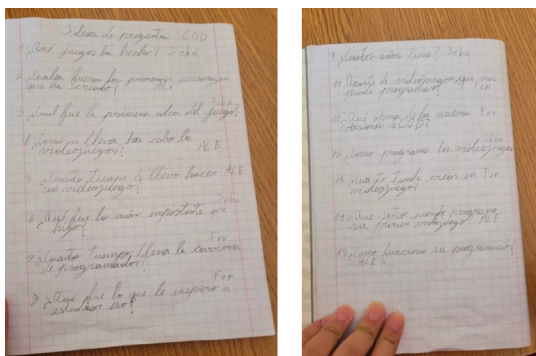 Ideas de preguntas COD
1 ¿Qué juegos ha hecho? Seba
2 ¿Cuales fueron los primeros personajes
que ha screado? ALE
Seba
3 ¿Cual fue la primera idea del juego?
4 ¿Como se lleva ha cabo los
videojuegos? ALE
5 ¿Cuánto tiempo le llevo hacer ALE
un videojuego?
Seba
6 ¿Qué fue lo más importante que
hizo?
Fer
7 ¿Cuanto tiempo lleva la carrera
de programador?
Fer
8 ¿Qué fue lo que le inspiro a
estudiar eso?
9 ¿Cuantos años tiene? Seba
10 Aparte de videojuegos que mas
puede programar? Fer
11 ¿Qué opina de la nueva Fer
COD?
Seba
12 ¿Como programa los videojuegos
13 ¿cuanto tarda crear un Fer
videojuego?
14 ¿Qué sintio cuando programo
su primer videojuego ALE
15 ¿Como funciona su programador?
ALE